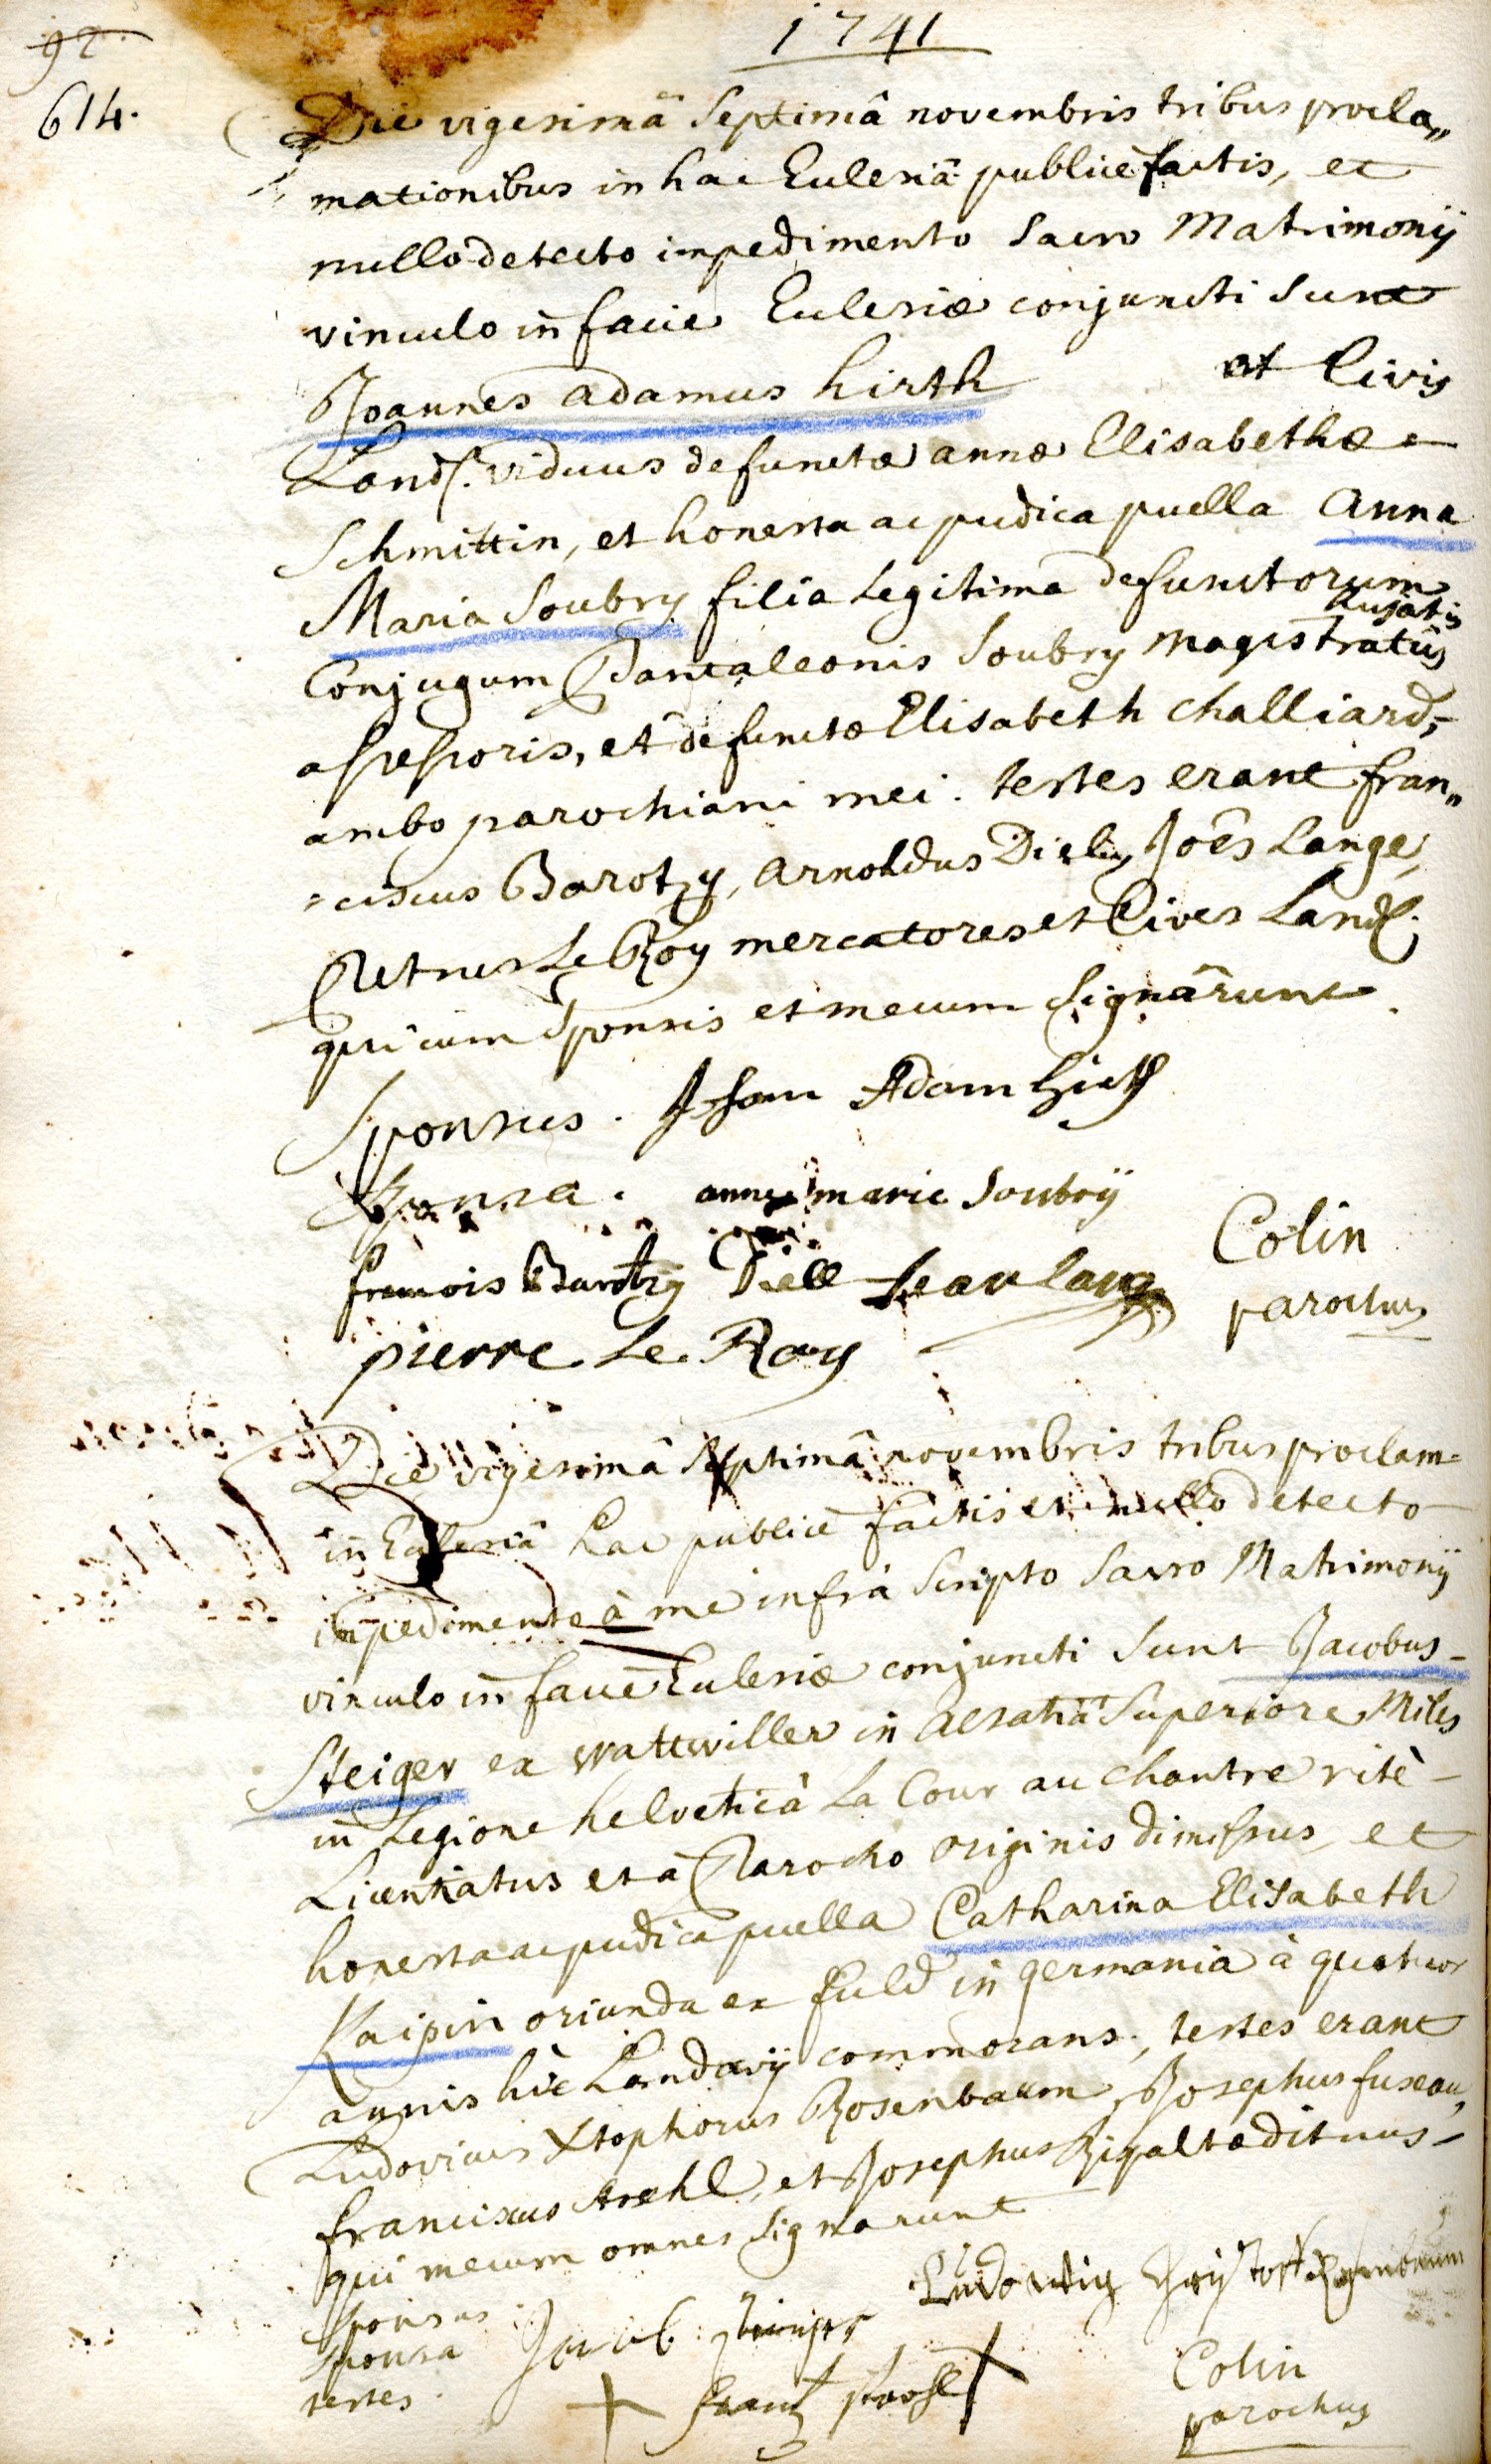 1741
92.
614.
Die vigesimâ Septimâ novembris tribus procla„
mationibus in hac Ecclesiâ publicè factis, et
nullo detecto impedimento Sacro Matrimonÿ
vinculo in facie Ecclesiæ conjuncti Sunt
Joannes adamus hirth et Civis
Land. viduus defunctæ annæ Elisabethæ
Schmittin, et honesta ac pudica puella Anna
Maria Soubry filia Legitima defunctorum
Conjugum Pantaleonis Soubry Magistratûs hujatis
assessoris, et defunctæ Elisabeth Challiard,
ambo parochiani mei. testes erant fran„
=ciscus Barotzy, Arnoldus Joês Lange,
Petrus Le Roy mercatores et Cives Land.
qui cum Sponsis et mecum Signârunt.
Sponsus. Johan Adam Hirth
Sponsa. anne marie Soubrÿ
francois Barotzy Diell Jean Lang
Colin
parochus
pierre Le Roy
Die vigesimâ Septimâ novembris tribus proclam=
in Ecclesiâ hac publicè factis et nullo detecto
impedimento à me infrà Scripto Sacro Matrimonÿ
vinculo in facie Ecclesiæ conjuncti Sunt Jacobus
Steiger ex Wattwiller in Alsatiâ Superiore Miles
in Legione helveticâ La Cour au Chantre ritè
Licentiatus et à Parocho originis dimissus, et
honesta ac pudica puella Catharina Elisabeth
Kaipin oriunda ex fuld in germania à quatuor
annis hîc Landavÿ commorans; testes erant
Ludovicus Xtophorus Rosenbaum, Josephus fuseau,
franciscus Strohl, et Josephus Rigalt ædituus
qui mecum omnes Signarunt
Sponsus Jacob Steiger Ludowig
Sponsa
testes. Frantz Strohl
Colin
parochus